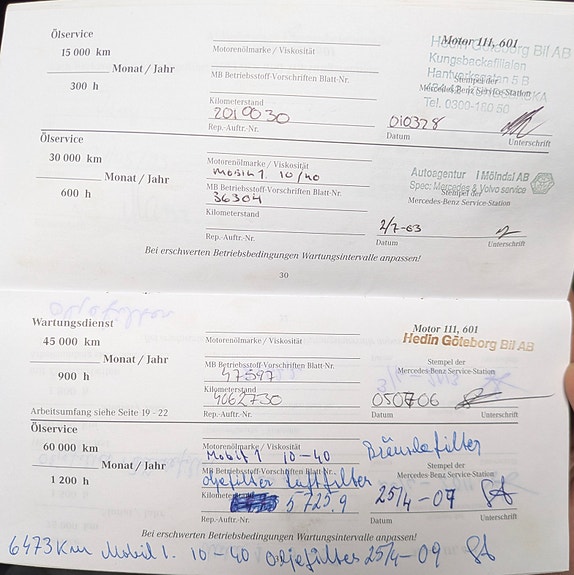 Ölservice
15 000 km
Monat / Jahr
300 h
Motorenölmarke / Viskosität
MB Betriebsstoff-Vorschriften Blatt-Nr.
Kilometerstand
2010030
Rep.-Auftr.-Nr.
Motor 111, 601
Hedin Göteborg Bil AB
Kungsbackafilialen
Hantverksgatan 5 B
Stempel der
Mercedes-Benz Service-Station
Tel. 0300-180 50
010328
Datum
Unterschrift
Ölservice
30 000 km
Monat / Jahr
600 h
Motorenölmarke / Viskosität
Mobil 1. 10/40
MB Betriebsstoff-Vorschriften Blatt-Nr.
36304
Kilometerstand
Rep.-Auftr.-Nr.
Autoagentur I Mölndal AB
Spec: Mercedes & Volvo service
Stempel der
Mercedes-Benz Service-Station
2/7-03
Datum
Unterschrift
Bei erschwerten Betriebsbedingungen Wartungsintervalle anpassen!
30
Wartungsdienst
45 000 km
Monat / Jahr
900 h
Arbeitsumfang siehe Seite 19 - 22
Motorenölmarke / Viskosität
MB Betriebsstoff-Vorschriften Blatt-Nr.
47597
Kilometerstand
4062730
Rep.-Auftr.-Nr.
Motor 111, 601
Hedin Göteborg Bil AB
Stempel der
Mercedes-Benz Service-Station
050706
Datum
Unterschrift
Ölservice
60 000 km
Monat / Jahr
1 200 h
Motorenölmarke / Viskosität
Mobil 1 10-40
MB Betriebsstoff-Vorschriften Blatt-Nr.
oljefilter Luftfilter
5725.9
Rep.-Auftr.-Nr.
Bränslefilter
Stempel der
Mercedes-Benz Service-Station
25/4-07
Datum
Unterschrift
Bei erschwerten Betriebsbedingungen Wartungsintervalle anpassen!
6473 Km Mobil 1. 10-40 Oljefilter 25/4-09